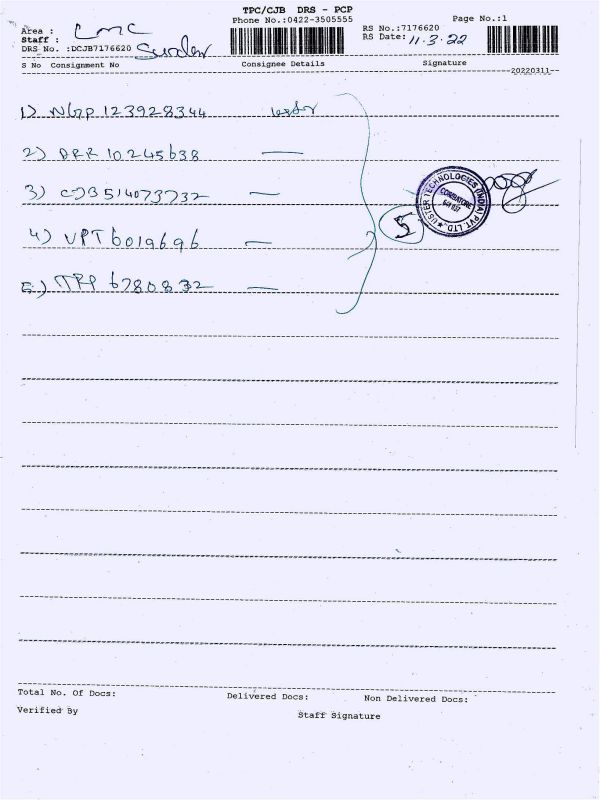 TPC/CJB DRS - PCP
Phone No.:0422-3505555 Page No.:1
Area : CMC RS No.:7176620
Staff : Sundar RS Date: 11.3.22
DRS No. :DCJB7176620
S No Consignment No Consignee Details Signature
20220311
1) NGP 123928344
2) DRR 10245638 —
3) CJB 514073732 —
4) VPT 6019696 —
5) TRP 6780832 —
5
USTER TECHNOLOGIES (INDIA) PVT. LTD.
COIMBATORE
Total No. Of Docs: Delivered Docs: Non Delivered Docs:
Verified By Staff Signature